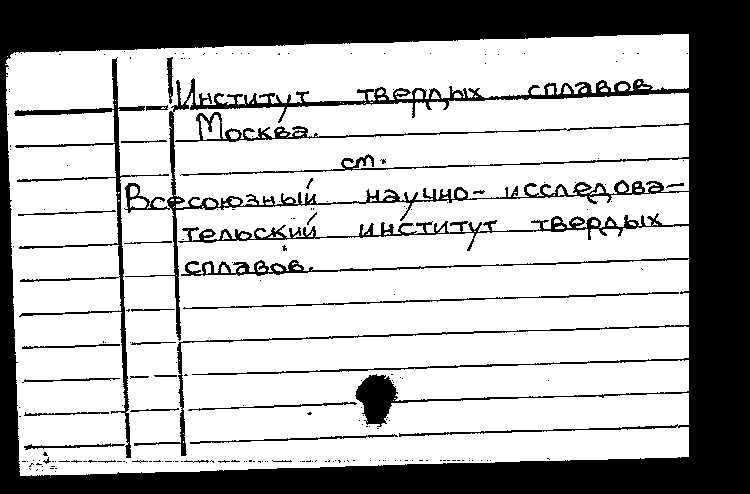 Институт твердых сплавов.
Москва.
см.
Всесоюзный научно-исследова-
тельский институт твердых
сплавов.